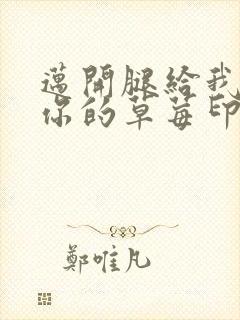 邁開腿給我
你的草莓印
鄭唯凡